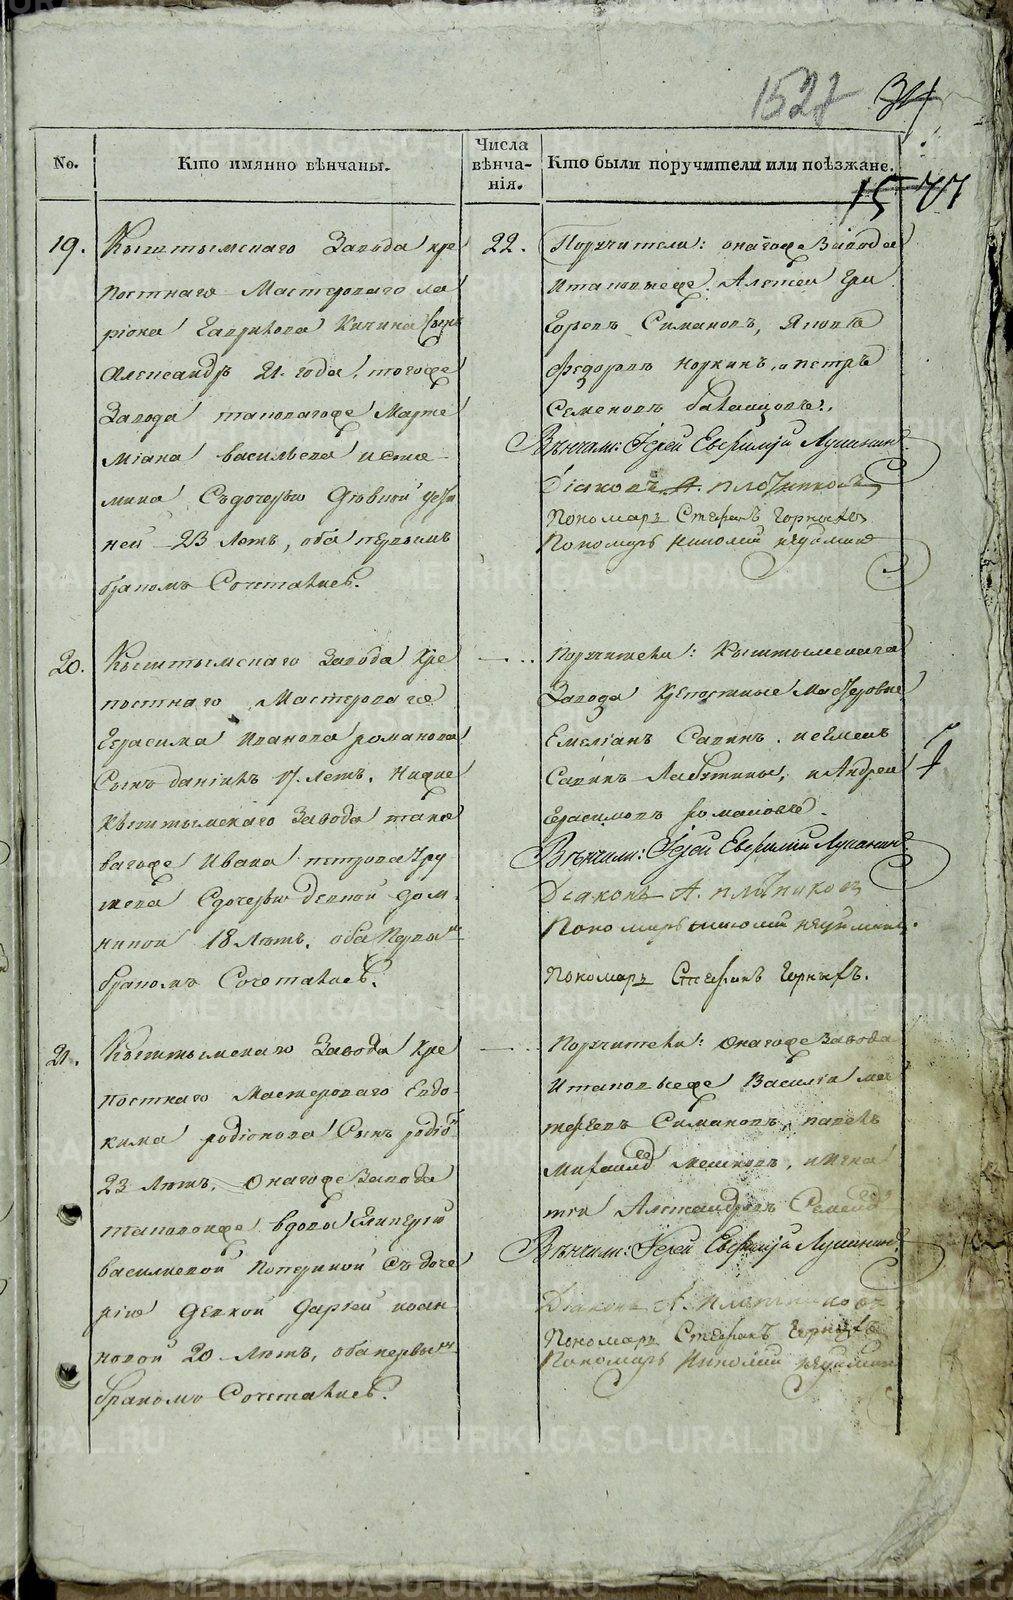 34
15 77
№.
Кто имянно вѣнчаны.
Числа
вѣнча-
нія.
Кто были поручители или поѣзжане.
19.
Кыштымскаго Завода кре
постнаго Мастероваго ла
ріона Гаврилова Кичина сынъ
Александръ 21. года, тогоже
Завода таковагоже
васильева
Съдочерью дѣвкой
ней 23 Лѣтъ, оба первымъ
бракомъ Сочетались.
22.
Поручители: онагоже Завода
Итаковыеже Алексеи Гри
горьевъ Симановъ, Яковъ
Федоровъ Норкинъ, и петръ
Семеновъ
Вѣнчали: Іерей Евфимій Лупанинъ
Діаконъ А. плотниковъ
Пономарь Стефанъ Горныхъ
Пономарь николай
20.
Кыштымскаго Завода Кре
постнаго Мастероваго
Герасима Иванова романова
Сынъ данилъ 17. Летъ, Ниже
Кыштымскаго Завода тако
вагоже Ивана петрова
Сдочерью девкой дом
никой 18 Лѣтъ, оба Первы
бракомъ Сочетались.
Поручители: Кыштымскаго
Завода Крепостные Мастеровые
Емеліанъ Савинъ, и
Савинъ и Андреи
Герасимовъ романовъ.
Вѣнчали: Іерей Евфимій Лупанинъ
Діаконъ А. плотниковъ
Пономарь николай
Пономарь Стефанъ Горныхъ.
21.
Кыштымскаго Завода Кре
постнаго Мастероваго Евдо
кима родіонова Сынъ родіо
23 Лѣтъ, Онагоже Завода
таковойже вдовы
василиевой Съ доче
рію девкой Дарьей иоан
новой 20 Лѣтъ, оба первы
бракомъ Сочетались.
Поручители: Онагоже Завода
Итаковыеже Василіи мат
фѣевъ Симановъ, павелъ
Михаиловъ Мешковъ,
Александровъ
Вѣнчали: Іерей Евфимій Лупанинъ
Діаконъ А. плотниковъ
Пономарь Стефанъ Горныхъ
Пономарь Николай
METRIKI.GASO-URAL.RU